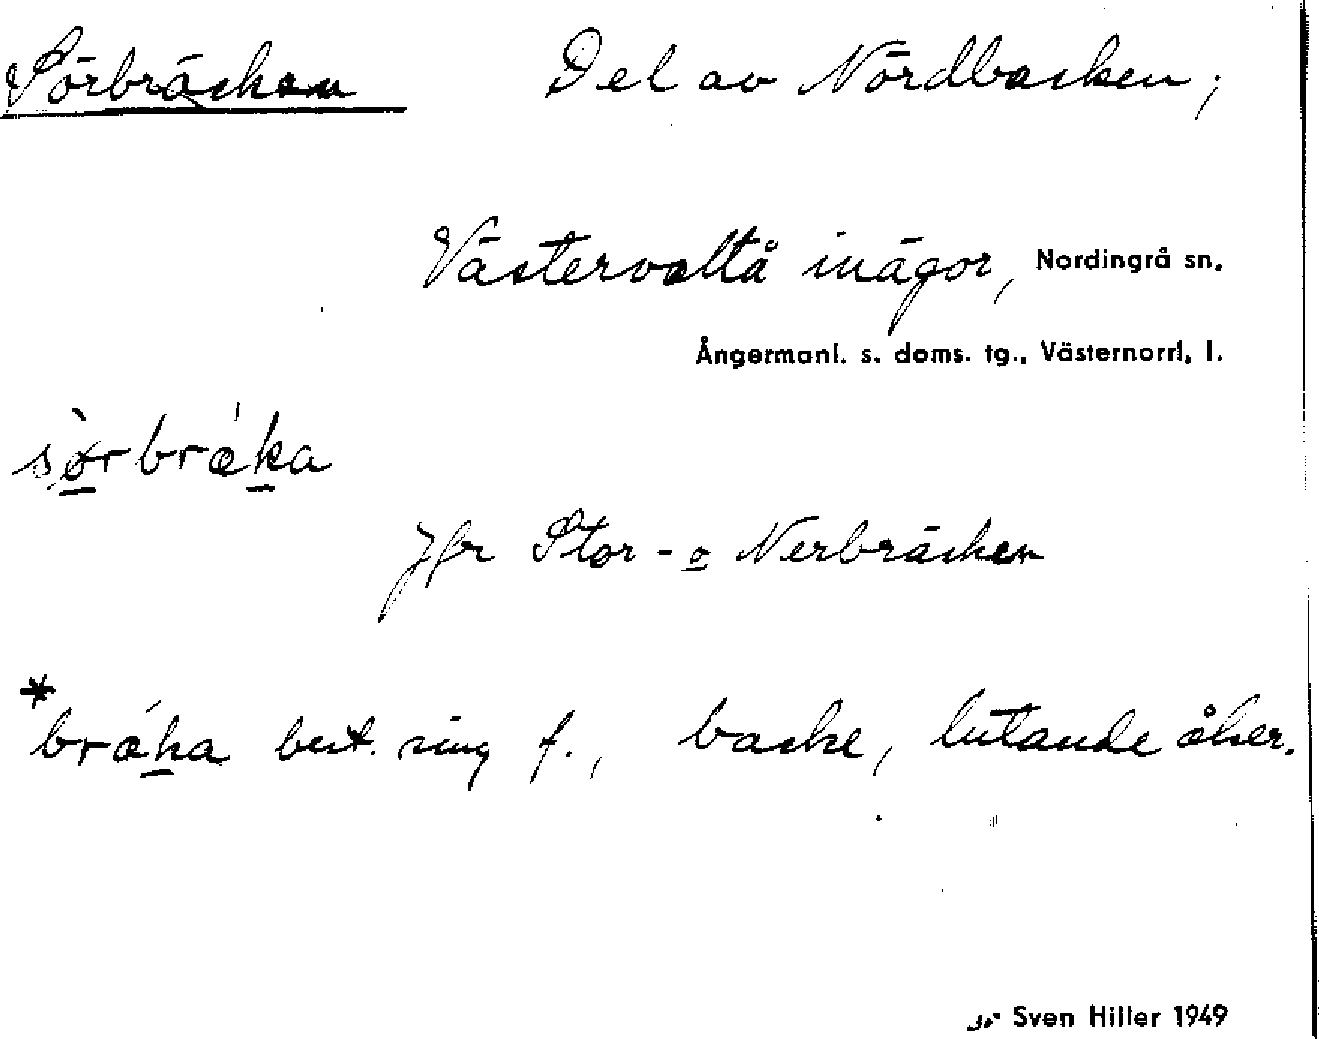 Sörbräcken Del av Nordbacken;
Västervattå inägor, Nordingrå sn.
Ångermanl. s. doms. tg., Västernorrl. l.
sø̀rbrǽka
Jfr Stor- o Nerbräcken
*bráka best. sing f., backe, lutande åker.
Sven Hiller 1949